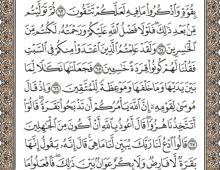 بِقُوَّةٍ وَٱذۡكُرُواْ مَا فِيهِ لَعَلَّكُمۡ تَتَّقُونَ ٦٣ ثُمَّ تَوَلَّيۡتُم
مِّنۢ بَعۡدِ ذَٰلِكَۖ فَلَوۡلَا فَضۡلُ ٱللَّهِ عَلَيۡكُمۡ وَرَحۡمَتُهُۥ لَكُنتُم مِّنَ
ٱلۡخَٰسِرِينَ ٦٤ وَلَقَدۡ عَلِمۡتُمُ ٱلَّذِينَ ٱعۡتَدَوۡاْ مِنكُمۡ فِي ٱلسَّبۡتِ
فَقُلۡنَا لَهُمۡ كُونُواْ قِرَدَةً خَٰسِـِٔينَ ٦٥ فَجَعَلۡنَٰهَا نَكَٰلٗا لِّمَا
بَيۡنَ يَدَيۡهَا وَمَا خَلۡفَهَا وَمَوۡعِظَةٗ لِّلۡمُتَّقِينَ ٦٦ وَإِذۡ قَالَ
مُوسَىٰ لِقَوۡمِهِۦٓ إِنَّ ٱللَّهَ يَأۡمُرُكُمۡ أَن تَذۡبَحُواْ بَقَرَةٗۖ قَالُوٓاْ
أَتَتَّخِذُنَا هُزُوٗاۖ قَالَ أَعُوذُ بِٱللَّهِ أَنۡ أَكُونَ مِنَ ٱلۡجَٰهِلِينَ
٦٧ قَالُواْ ٱدۡعُ لَنَا رَبَّكَ يُبَيِّن لَّنَا مَا هِيَۚ قَالَ إِنَّهُۥ يَقُولُ إِنَّهَا
بَقَرَةٞ لَّا فَارِضٞ وَلَا بِكۡرٌ عَوَانُۢ بَيۡنَ ذَٰلِكَۖ فَٱفۡعَلُواْ مَا